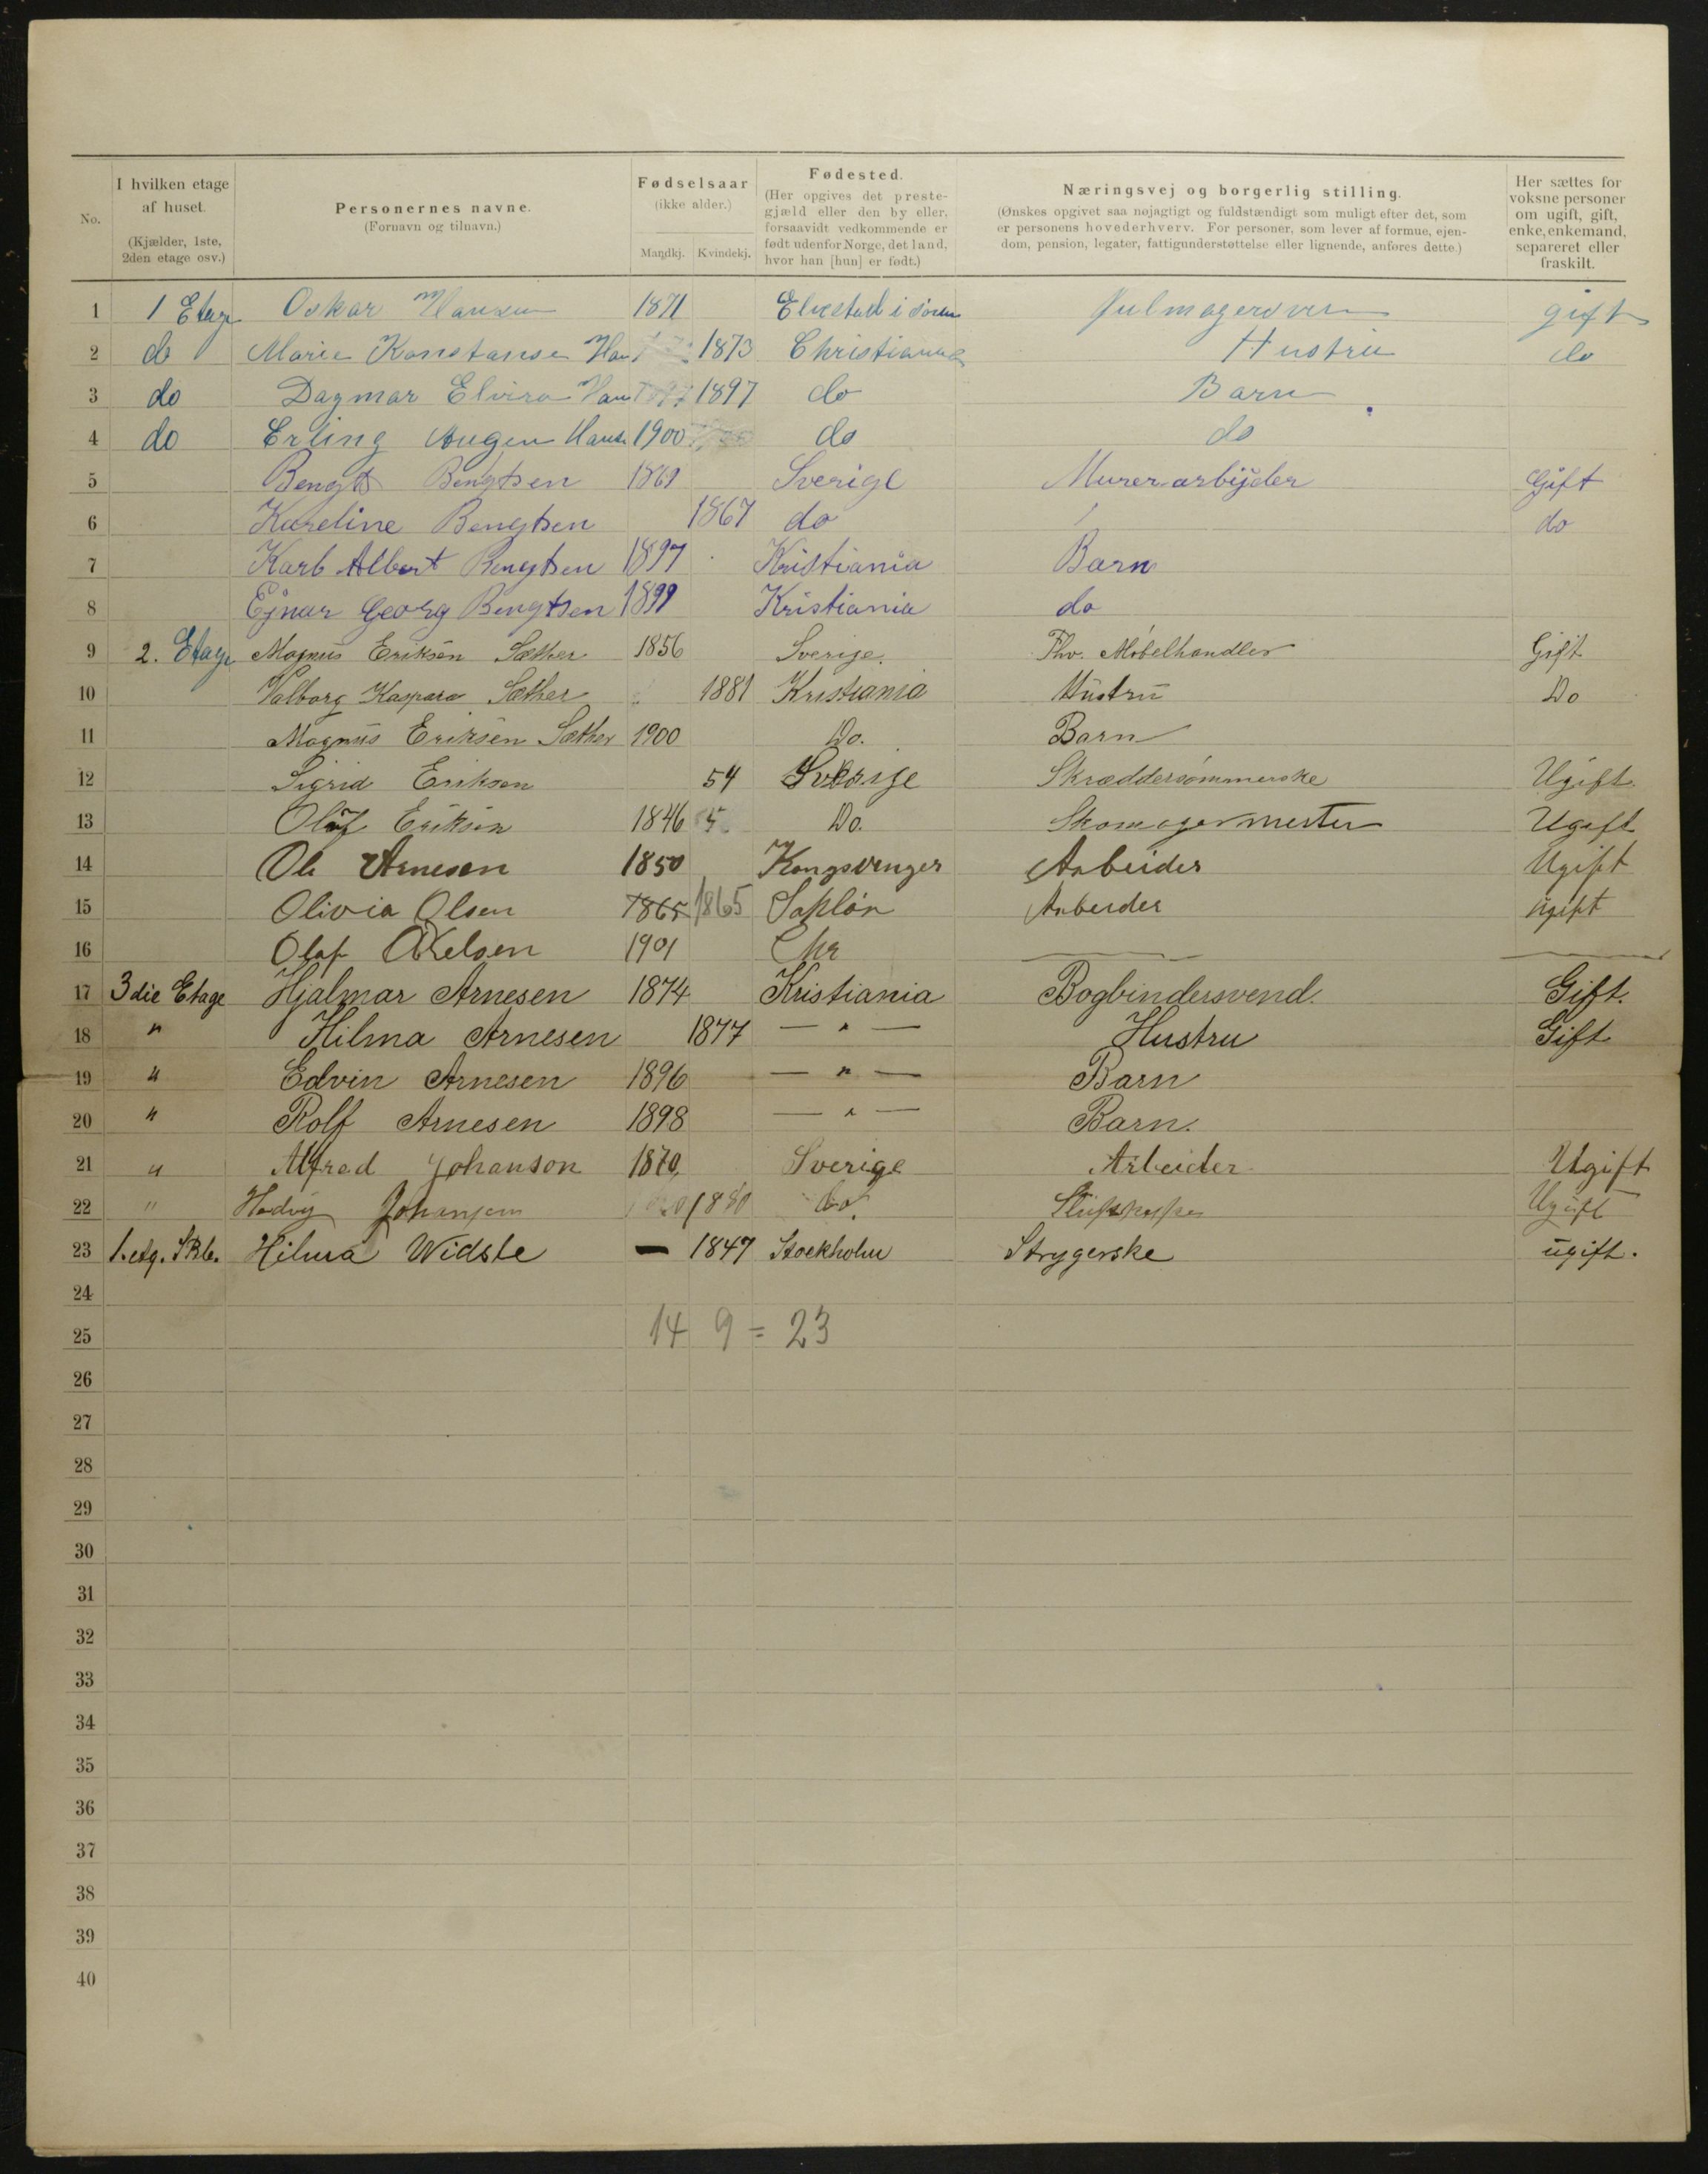 No.
I hvilken etage af huset.
(Kjælder, 1ste, 2den etage osv.)
Personernes navne.
(Fornavn og tilnavn.)
Fødselsaar
(ikke alder.)
Mandkj. Kvindekj.
Fødested.
(Her opgives det prestegjæld eller den by eller, forsaavidt vedkommende er født udenfor Norge, det land, hvor han [hun] er født.)
Næringsvej og borgerlig stilling.
(Ønskes opgivet saa nøjagtigt og fuldstændigt som muligt efter det, som er personens hovederhverv. For personer, som lever af formue, ejendom, pension, legater, fattigunderstøttelse eller lignende, anføres dette.)
Her sættes for voksne personer om ugift, gift, enke, enkemand, separeret eller fraskilt.
1 1 Etage Oskar Hansen 1871 gift
2 do Marie Konstanse Han 1873 Christiania Hustru do
3 do Dagmar Elvira Han 1897 do Barn
4 do Erling Augen Hans 1900 do do
5 Bengt Bengtsen 1861 Sverige Murerarbijder Gift
6 Kareline Bengtsen 1867 do do
7 Karl Albert Bengtsen 1897 Kristiania Barn
8 Ejnar Georg Bengtsen 1899 Kristiania do
9 2. Etage Magnus Eriksen Sæther 1856 Sverige. Fhv. Møbelhandler Gift
10 Valborg Kaspara Sæther 1881 Kristiania Hustru Do
11 Magnus Eriksen Sæther 1900 Do. Barn
12 Sigrid Eriksen 54 Sverige Skræddersømmerske Ugift
13 Oluf Eriksen 1846 Do. Skomagermester Ugift
14 Ole Arnesen 1850 Kongsvinger Arbeider Ugift
15 Olivia Olsen 1865 1865 Arbeider ugift
16 Olaf Axelsen 1901 Chr
17 3die Etage Hjalmar Arnesen 1874 Kristiania Bogbindersvend. Gift.
18 " Hilma Arnesen 1877 — " — Hustru Gift
19 " Edvin Arnesen 1896 — " — Barn
20 " Rolf Arnesen 1898 — " — Barn.
21 " Alfred Johanson 1870 Sverige Arbeider Ugift
22 " Hedvig Johansen 1880 do. Ugift
23 1. etg. Hilma Widste — 1847 Stockholm Strygerske ugift.
24
25 14 9 = 23
26
27
28
29
30
31
32
33
34
35
36
37
38
39
40